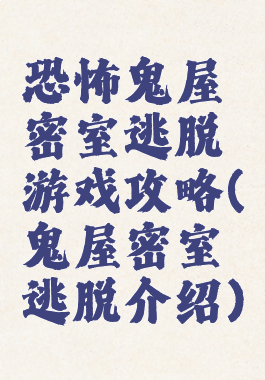 恐怖鬼屋
密室逃脱
游戏攻略(
鬼屋密室
逃脱介绍)